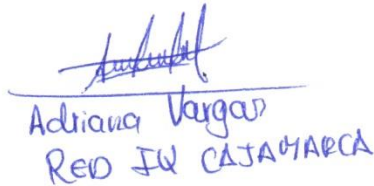 Adriana Vargas
RED IQ CAJAMARCA